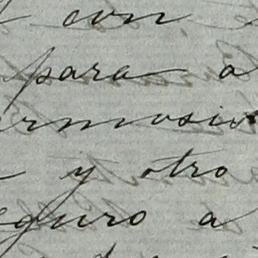 con
para a
ermosi
y otro
eguro a